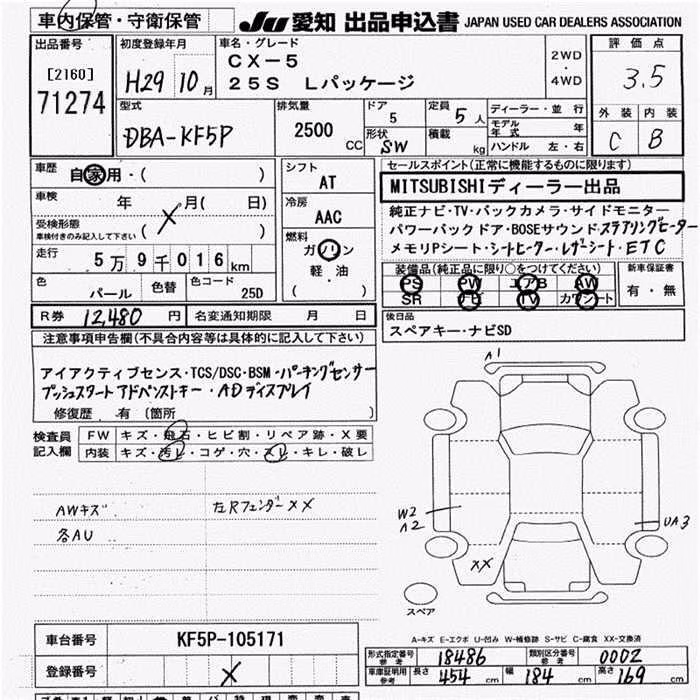 車内保管・守衛保管
JU 愛知 出品申込書 JAPAN USED CAR DEALERS ASSOCIATION
出品番号
[2160]
71274
初度登録年月
H29 10月
車名・グレード
CX-5
25S Lパッケージ
2WD
・
4WD
評価点
3.5
外装 内装
C B
型式
DBA-KF5P
排気量
2500 CC
ドア
5
定員
5人
形状
SW
積載
kg
ディーラー・並行
モデル年式 年
ハンドル 左・右
車歴
自家用・( )
車検
年 月( 日)
受検形態
車検付きのみ記入して下さい
( )
X
走行
5万9千016km
色
パール
色替
色コード
25D
シフト
AT
冷房
AAC
燃料
ガソリン
軽・油
( )
セールスポイント(正常に機能するものに限ります)
MITSUBISHIディーラー出品
純正ナビ・TV・バックカメラ・サイドモニター
パワーバックドア・BOSEサウンド・ステアリングヒーター
メモリPシート・シートヒーター・レザーシート・ETC
装備品(純正品に限り○をつけてください)
PS PW エアB AW
SR ナビ TV カワシート
新車保証書
有・無
R券 12,480円
名変通知期限 月 日
後日品
スペアキー・ナビSD
注意事項申告欄(不具合内容等は具体的に記入して下さい)
アイアクティブセンス・TCS/DSC・BSM・パーキングセンサー
プッシュスタート アドバンストキー・ADディスプレイ
修復歴 有〔箇所 〕
検査員
記入欄
FW キズ・飛石・ヒビ割・リペア跡・X要
内装 キズ・汚レ・コゲ・穴・スレ・キレ・破レ
AWキズ
各AU
左Rフェンダー××
A1
W2
A2
UA3
××
スペア
A-キズ E-エクボ U-凹み W-補修跡 S-サビ C-腐食 XX-交換済
車台番号
KF5P-105171
登録番号
X
形式指定番号
参考
18486
類別区分番号
参考
0002
車庫証明用
参考
長さ 454 cm
幅 184 cm
高さ 169 cm